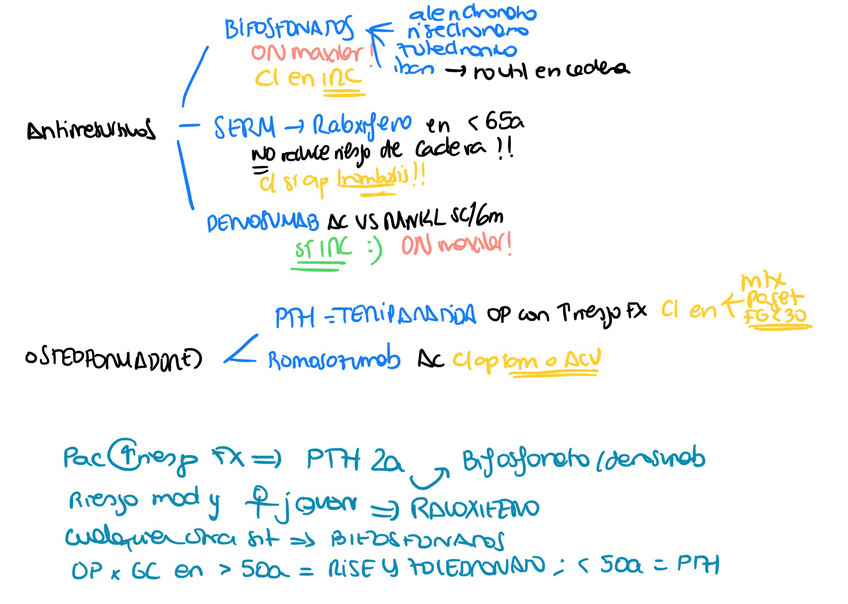 BIFOSFONATOS
alendronato
risedronato
zoledronato
iban → no util en cadera
ON maxilar!
CI en IRC
Antirresortivos
SERM → Raloxifeno en < 65a
NO reduce riesgo de cadera !!
CI si ap trombosis!!
DENOSUMAB AC VS RANKL SC/6m
SI IRC :) ON maxilar!
PTH = TERIPARATIDA OP con ↑riesgo FX CI en ←
mtx
Paget
FG<30
OSTEOFORMADORES
Romosozumab AC CI ap IAM o ACV
Pac ↑riesgo FX => PTH 2a Bifosfonato/denosumab
Riesgo mod y ♀ joven => RALOXIFENO
Cualquier otra sit => BIFOSFONATOS
OP x GC en > 50a = RISE Y ZOLEDRONATO ; < 50a = PTH